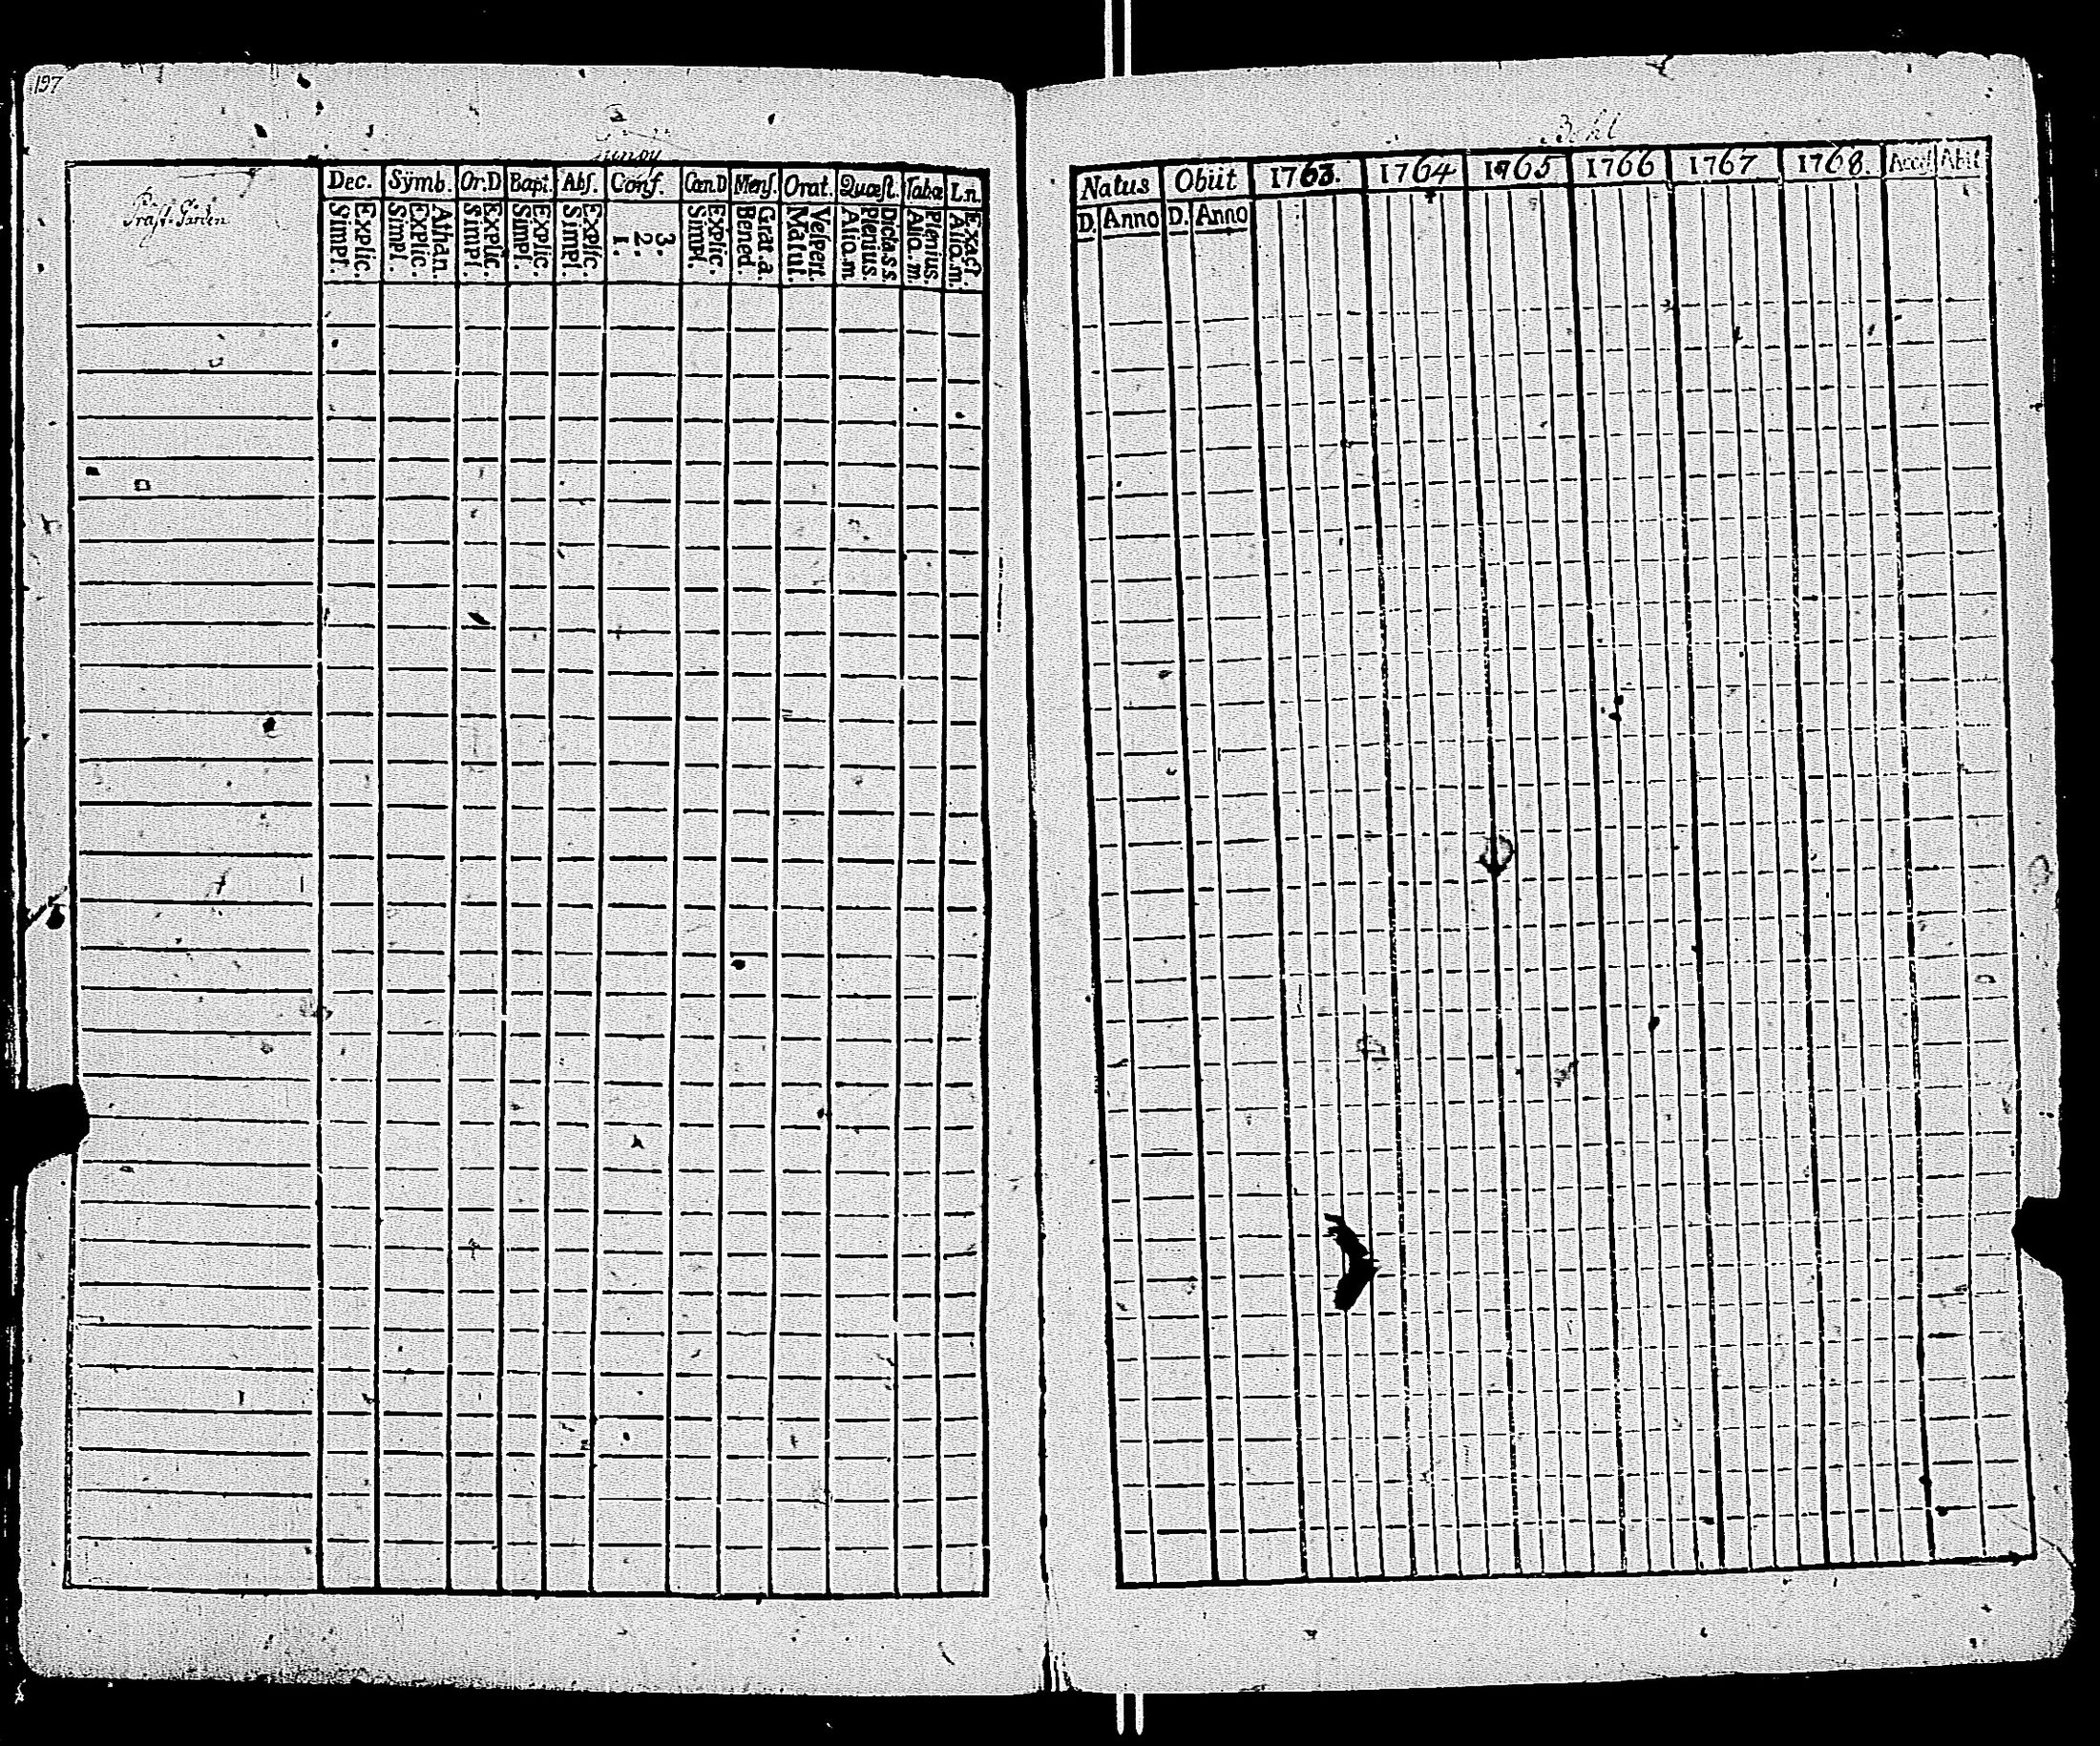 197
Dec. Sÿmb. Or.D Bapt. Abſ. Conf. Can.D Menſ. Orat. Quæſt. Tabœ L.n.
Explic. Simpl. Athan. Explic. Simpl. Explic. Simpl. Explic. Simpl. Explic. Simpl. 3. 2. 1. Explic. Simpl. Grat.a Bened. Veſpert. Matut. Dicta.s.s. Plenius. Alio.m Plenius. Alio.m Exact. Aliq.m.
Natus Obiit 1763. 1764 1765 1766 1767 1768. Acceſ Abiit
D. Anno D. Anno